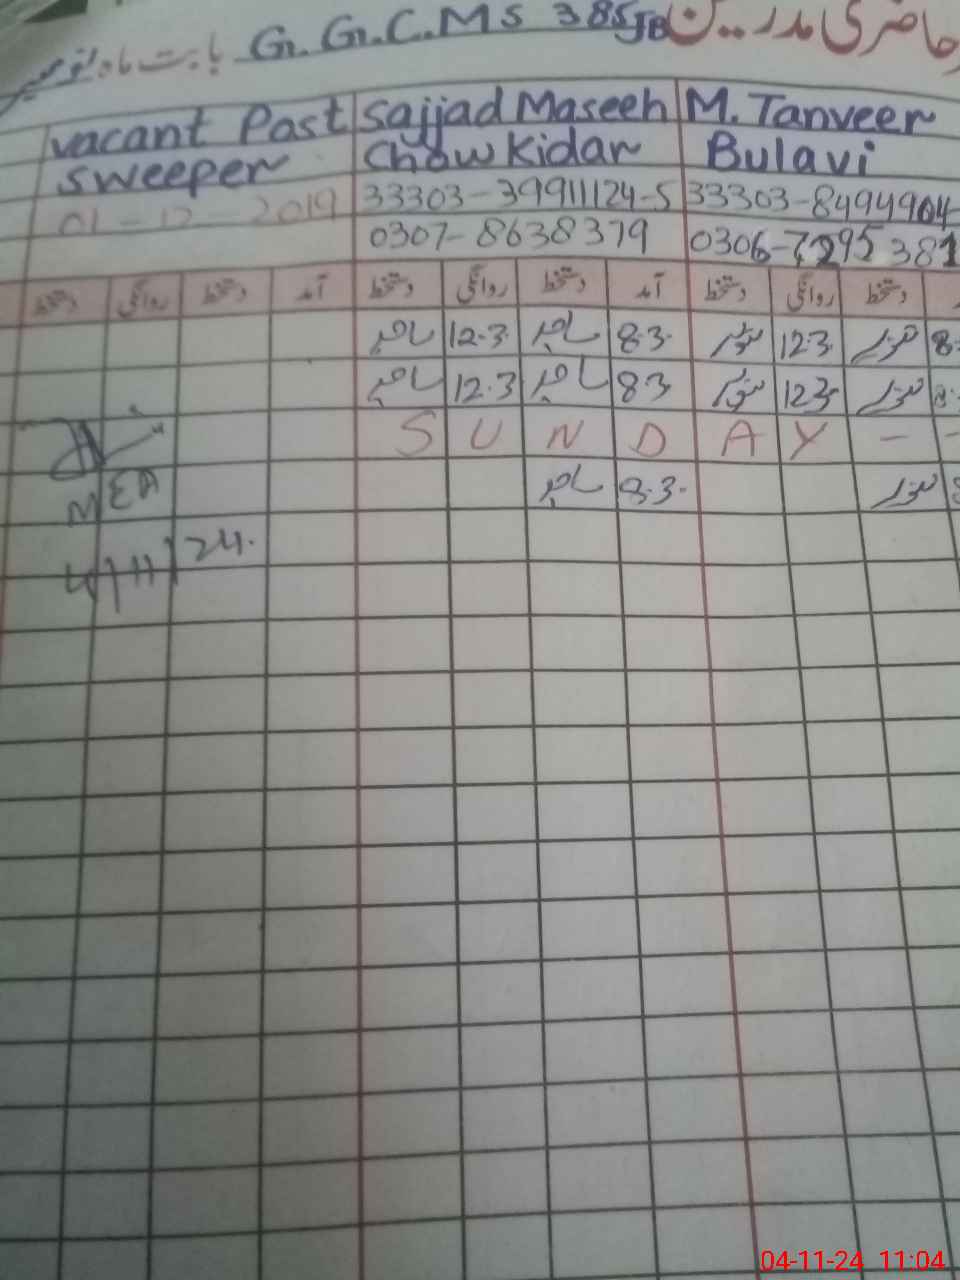 حاضری مدرسین G.G.C.M S 385 JB بابت ماہ نومبر
vacant Post Sajjad Maseeh M. Tanveer
sweeper Chowkidar Bulavi
01-12-2019 33303-39911124-5 33303-8494904
0307-8638379 0306-7295381
دستخط روانگی دستخط آمد دستخط روانگی دستخط آمد دستخط روانگی دستخط
12.3. 8.3. 12.3 8.
12.3 8.3 12.3 8.
S U N D A Y - -
8.3. 8
MEA
4/11/24.
04-11-24 11:04